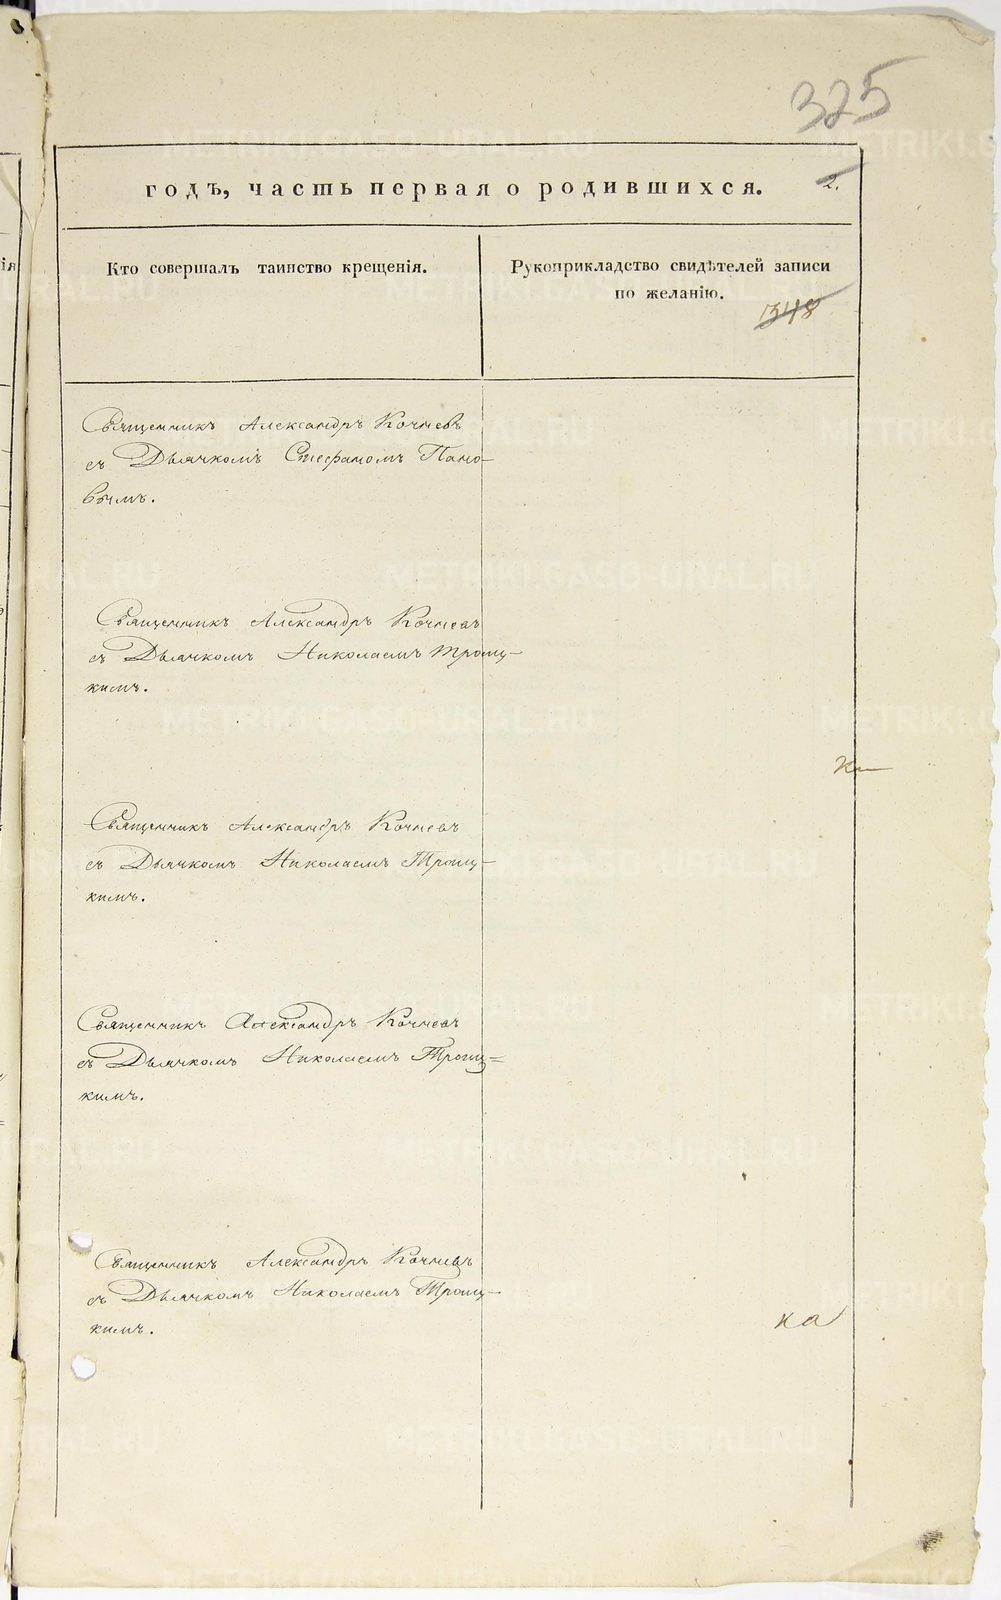 325
годъ, часть первая о родившихся. 2.
Кто совершалъ таинство крещенія.
Рукоприкладство свидѣтелей записи
по желанію.
348
Священникъ Александръ Кочневъ
съ Дьячкомъ Стефаномъ Пано-
вымъ.
Священникъ Александръ Кочневъ
съ Дьячкомъ Николаемъ Троиц-
кимъ.
Священникъ Александръ Кочневъ
съ Дьячкомъ Николаемъ Троиц-
кимъ.
Священникъ Александръ Кочневъ
съ Дьячкомъ Николаемъ Троиц-
кимъ.
Священникъ Александръ Кочневъ
съ Дьячкомъ Николаемъ Троиц-
кимъ.
на
METRIKI.GASO-URAL.RU